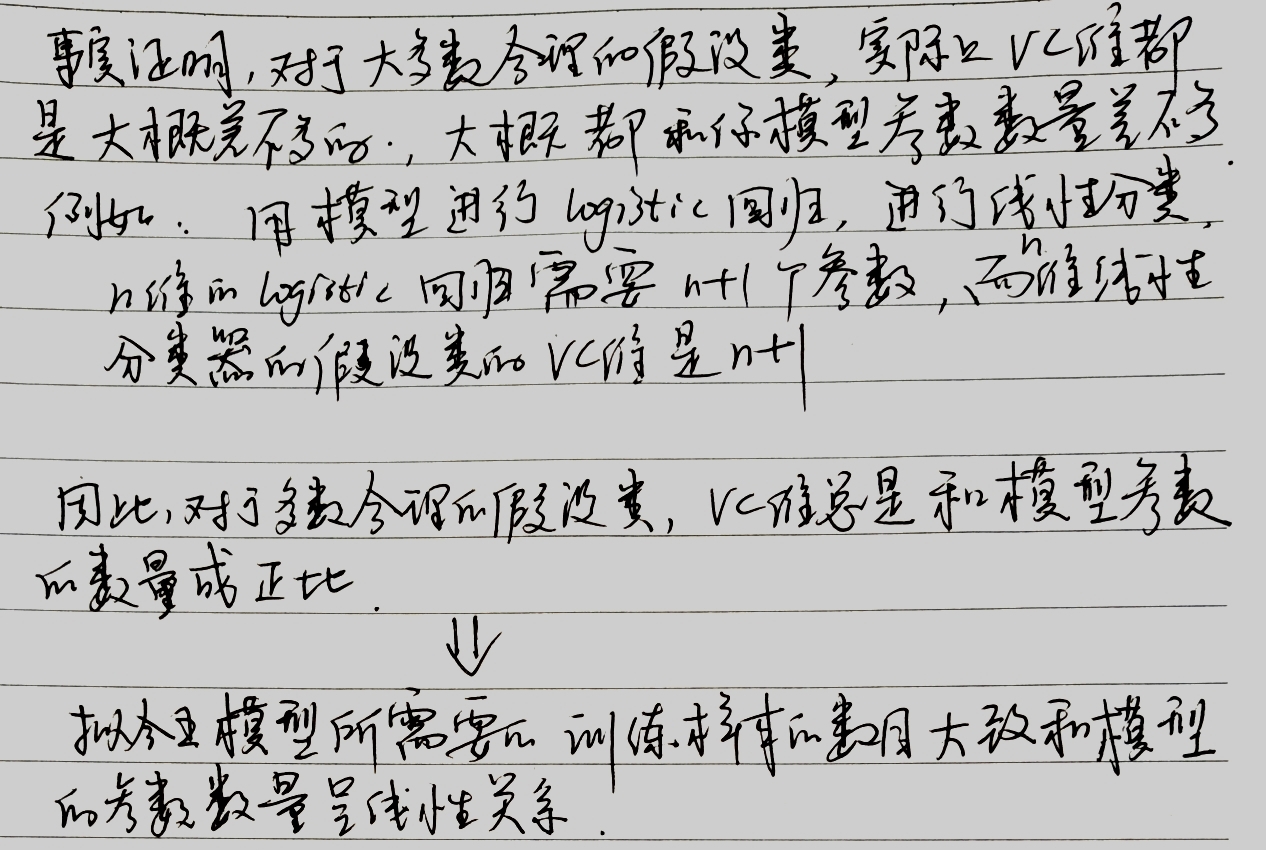 事实证明,对于大多数合理的假设类,实际上VC维都
是大概差不多的.,大概都和你模型参数数量差不多.
例如.用模型进行logistic回归,进行线性分类,
n维的logistic回归需要n+1个参数,而n维线性
分类器的假设类的VC维是n+1
因此,对于多数合理的假设类,VC维总是和模型参数
的数量成正比.
⇓
拟合且模型所需要的训练样本的数目大致和模型
的参数数量呈线性关系.